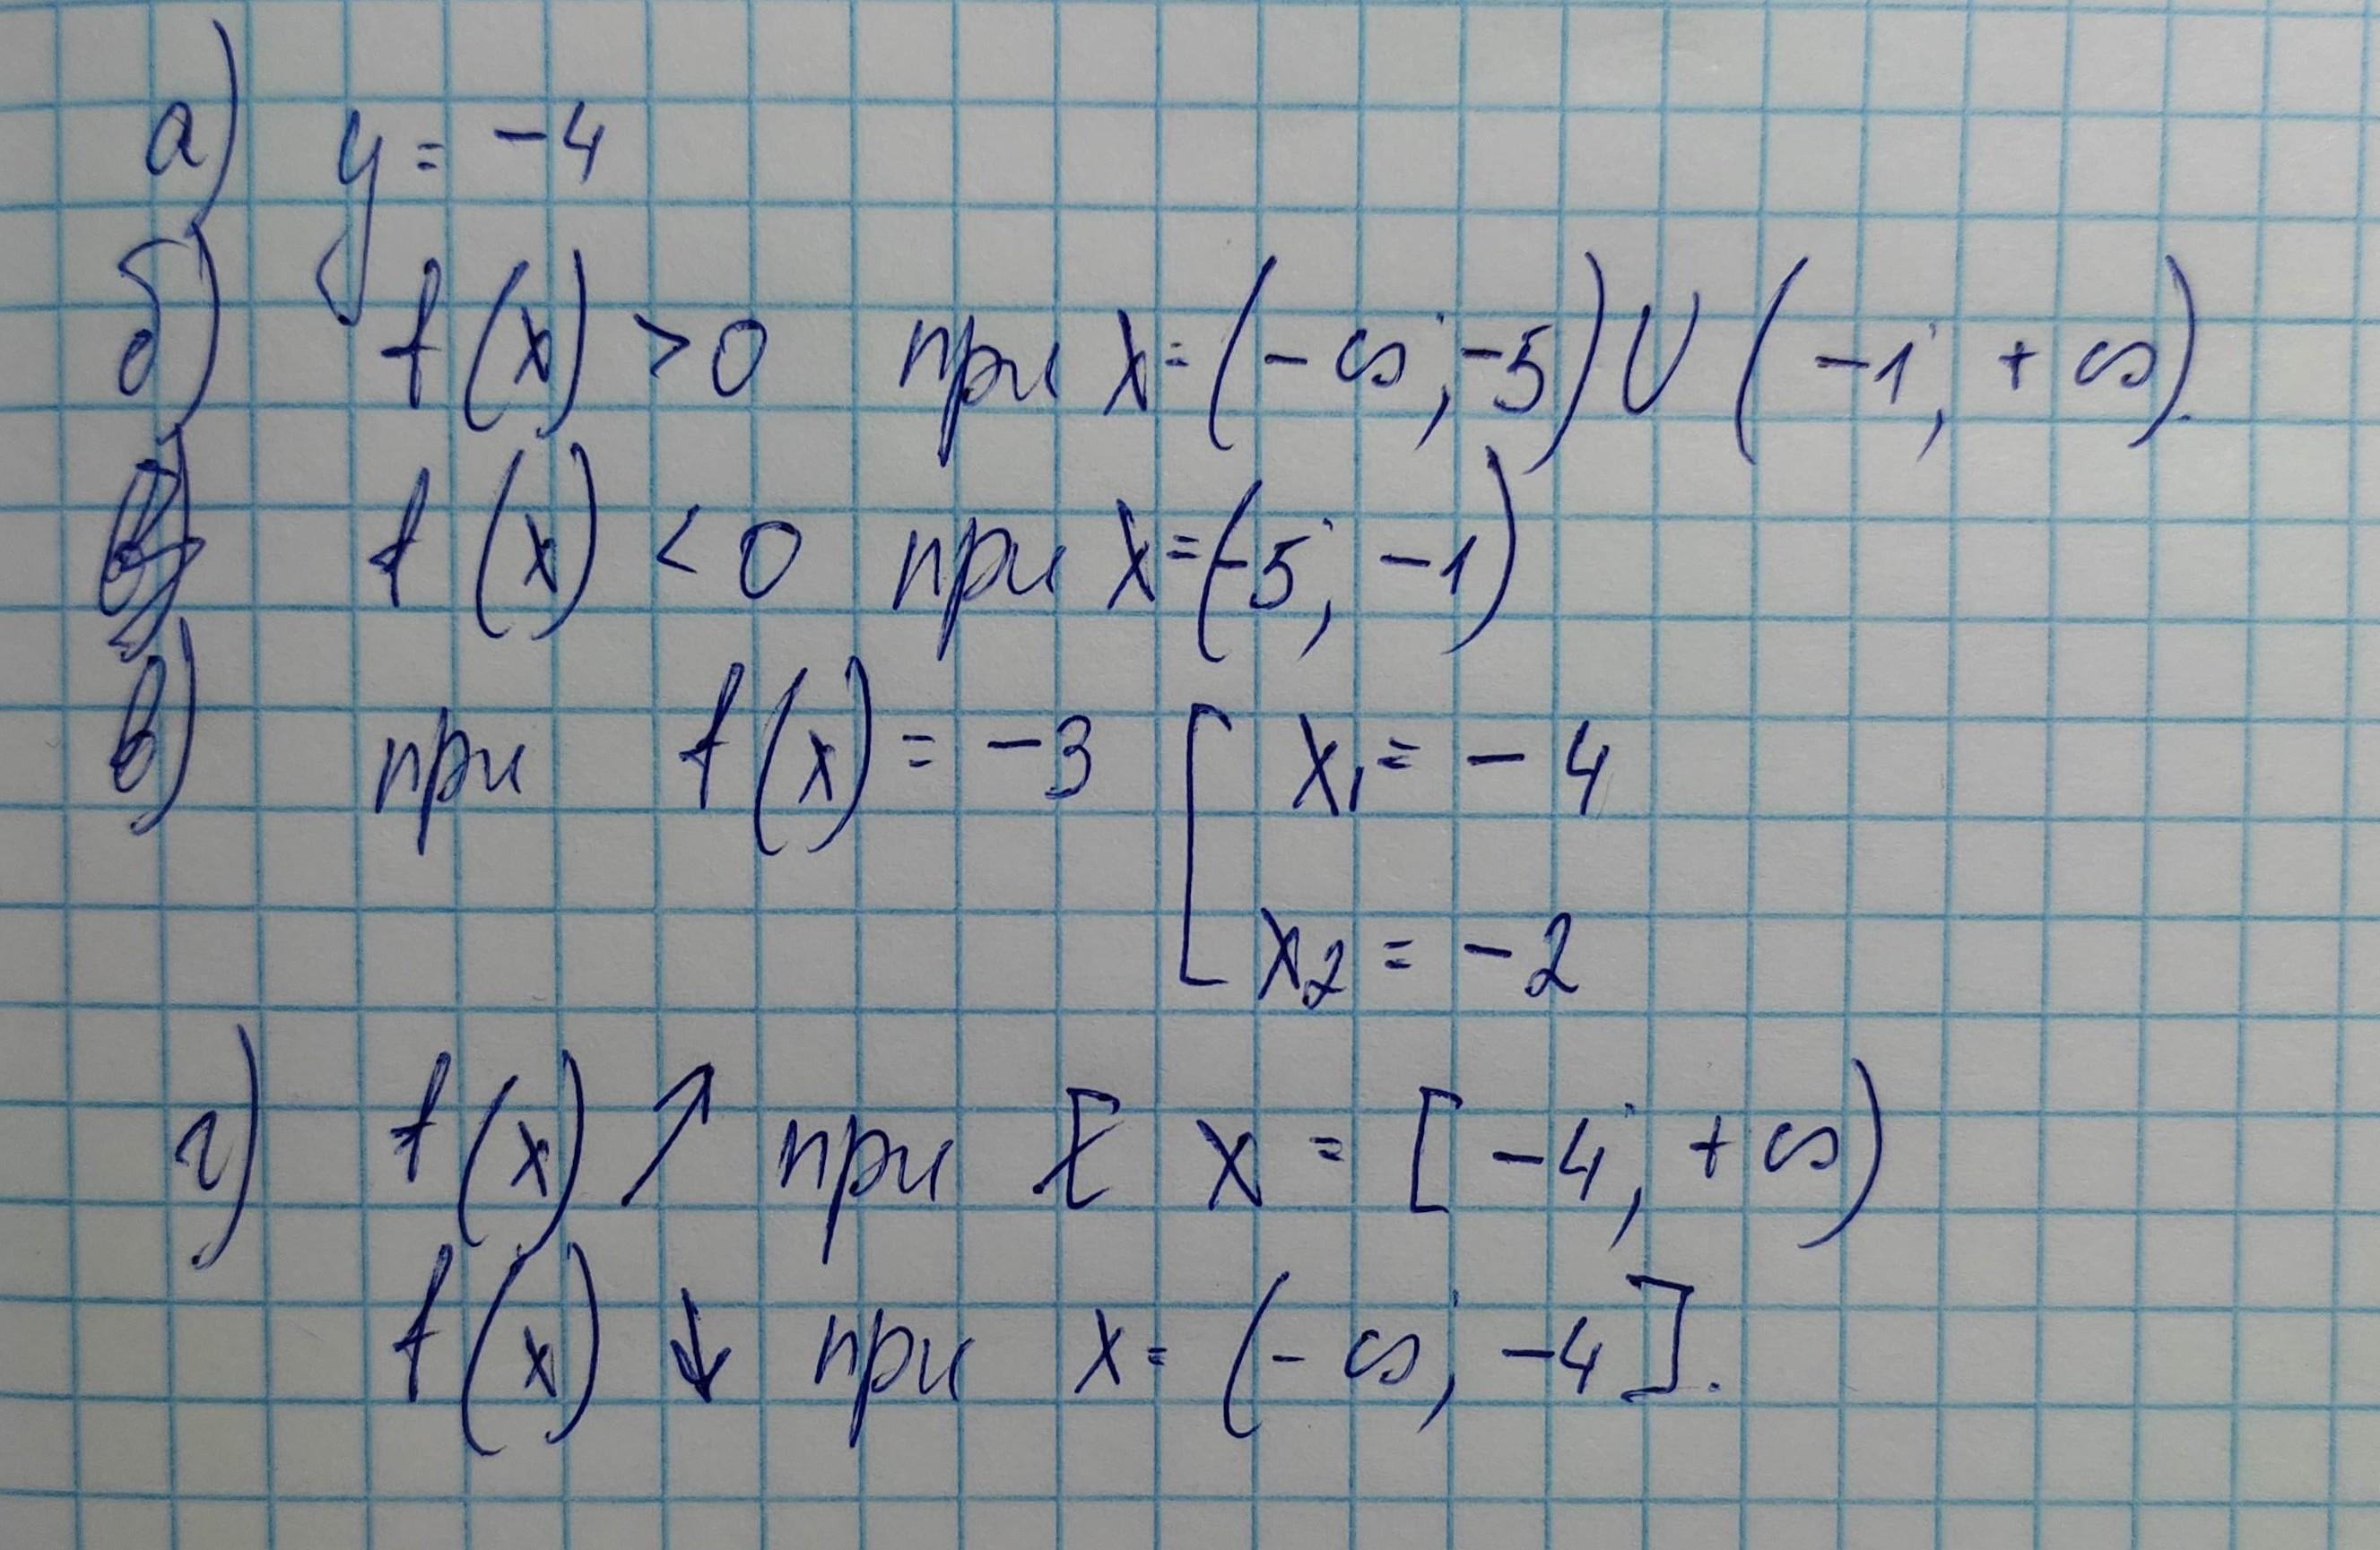 а) y = -4
б) f(x) > 0 при x = (-∞; -5) ∪ (-1; +∞).
f(x) < 0 при x = (-5; -1)
в) при f(x) = -3 [ x₁ = -4
x₂ = -2
г) f(x) ↗ при x = [-4; +∞)
f(x) ↓ при x = (-∞; -4].